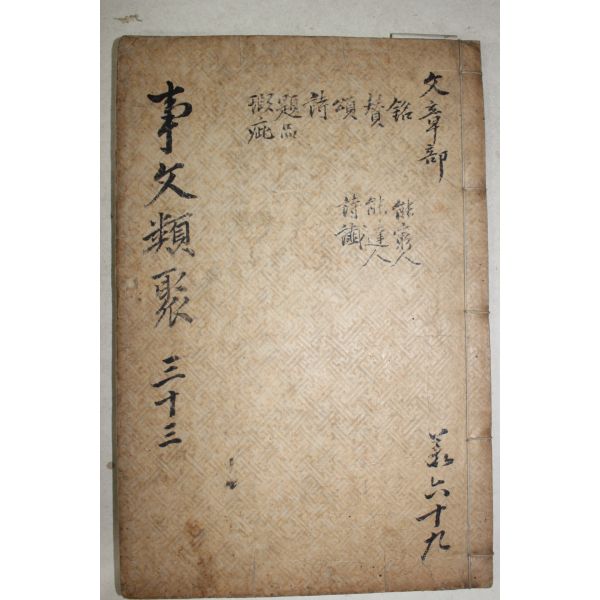 文章部
六十九
銘
賛
頌
詩
題品
瑕疵
能窮人
能達人
詩讖
事文類聚 三十三